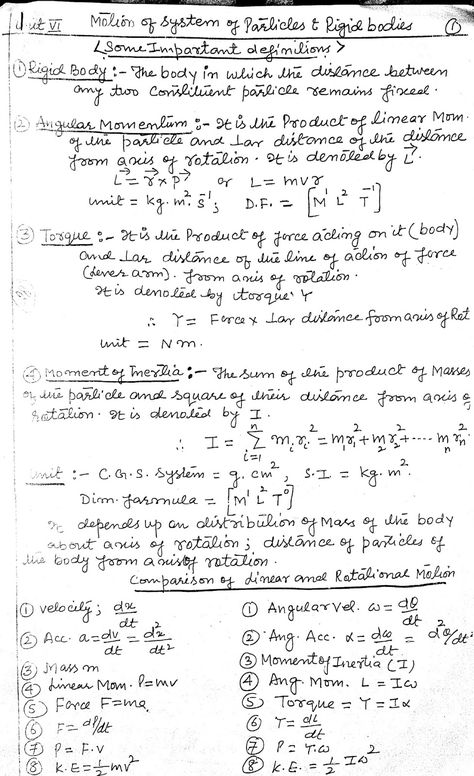 Unit VI Motion of System of Particles & Rigid bodies ①
<Some Important definitions>
① Rigid Body :- The body in which the distance between
any two constituent particle remains fixed.
② Angular Momentum :- It is the Product of linear Mom.
of the particle and Lar distance of the distance
from axis of rotation. It is denoted by L⃗.
L⃗ = r⃗ × P⃗ or L = mvr
unit = kg. m² s⁻¹; D.F. = [M¹ L² T⁻¹]
③ Torque :- It is the Product of force acting on it (body)
and Lar distance of the line of action of force
(lever arm). from axis of rotation.
It is denoted by torque τ
∴ τ = Force × Lar distance from axis of Rot
unit = N m.
④ Moment of Inertia :- The sum of the product of Masses
of the particle and square of their distance from axis of
rotation. It is denoted by I.
∴ I = Σⁿᵢ₌₁ mᵢrᵢ² = m₁r₁² + m₂r₂² + ---- mₙrₙ²
Unit :- C.G.S. System = g. cm², S.I = kg. m².
Dim. formula = [M¹ L² T⁰]
It depends up on distribution of Mass of the body
about axis of rotation; distance of particles of
the body from axis of rotation.
Comparison of Linear and Rotational Motion
① velocity; dx/dt ① Angular Vel. ω = dθ/dt
② Acc. a = dv/dt = d²x/dt² ② Ang. Acc. α = dω/dt = d²θ/dt²
③ Mass m ③ Moment of Inertia (I)
④ Linear Mom. P=mv ④ Ang. Mom. L = Iω
⑤ Force F=ma ⑤ Torque = τ = Iα
⑥ F = dP/dt ⑥ τ = dL/dt
⑦ P = F.v ⑦ P = τ.ω
⑧ K.E = ½ mv² ⑧ K.E. = ½ Iω²